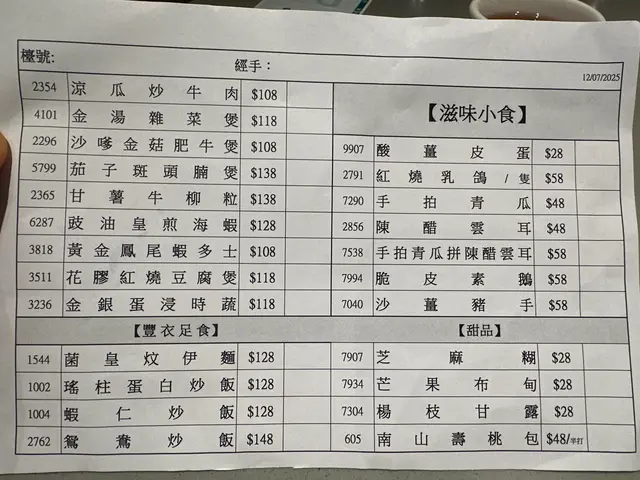 檯號:
經手：
12/07/2025
2354 涼瓜炒牛肉 $108
4101 金湯雜菜煲 $118
2296 沙嗲金菇肥牛煲 $108
5799 茄子斑頭腩煲 $138
2365 甘薯牛柳粒 $138
6287 豉油皇煎海蝦 $128
3818 黃金鳳尾蝦多士 $108
3511 花膠紅燒豆腐煲 $118
3236 金銀蛋浸時蔬 $118
【豐衣足食】
1544 菌皇炆伊麵 $128
1002 瑤柱蛋白炒飯 $128
1004 蝦仁炒飯 $128
2762 鴛鴦炒飯 $148
【滋味小食】
9907 酸薑皮蛋 $28
2791 紅燒乳鴿/隻 $58
7290 手拍青瓜 $48
2856 陳醋雲耳 $48
7538 手拍青瓜拼陳醋雲耳 $58
7994 脆皮素鵝 $58
7040 沙薑豬手 $58
【甜品】
7907 芝麻糊 $28
7934 芒果布甸 $28
7304 楊枝甘露 $28
605 南山壽桃包 $48/半打